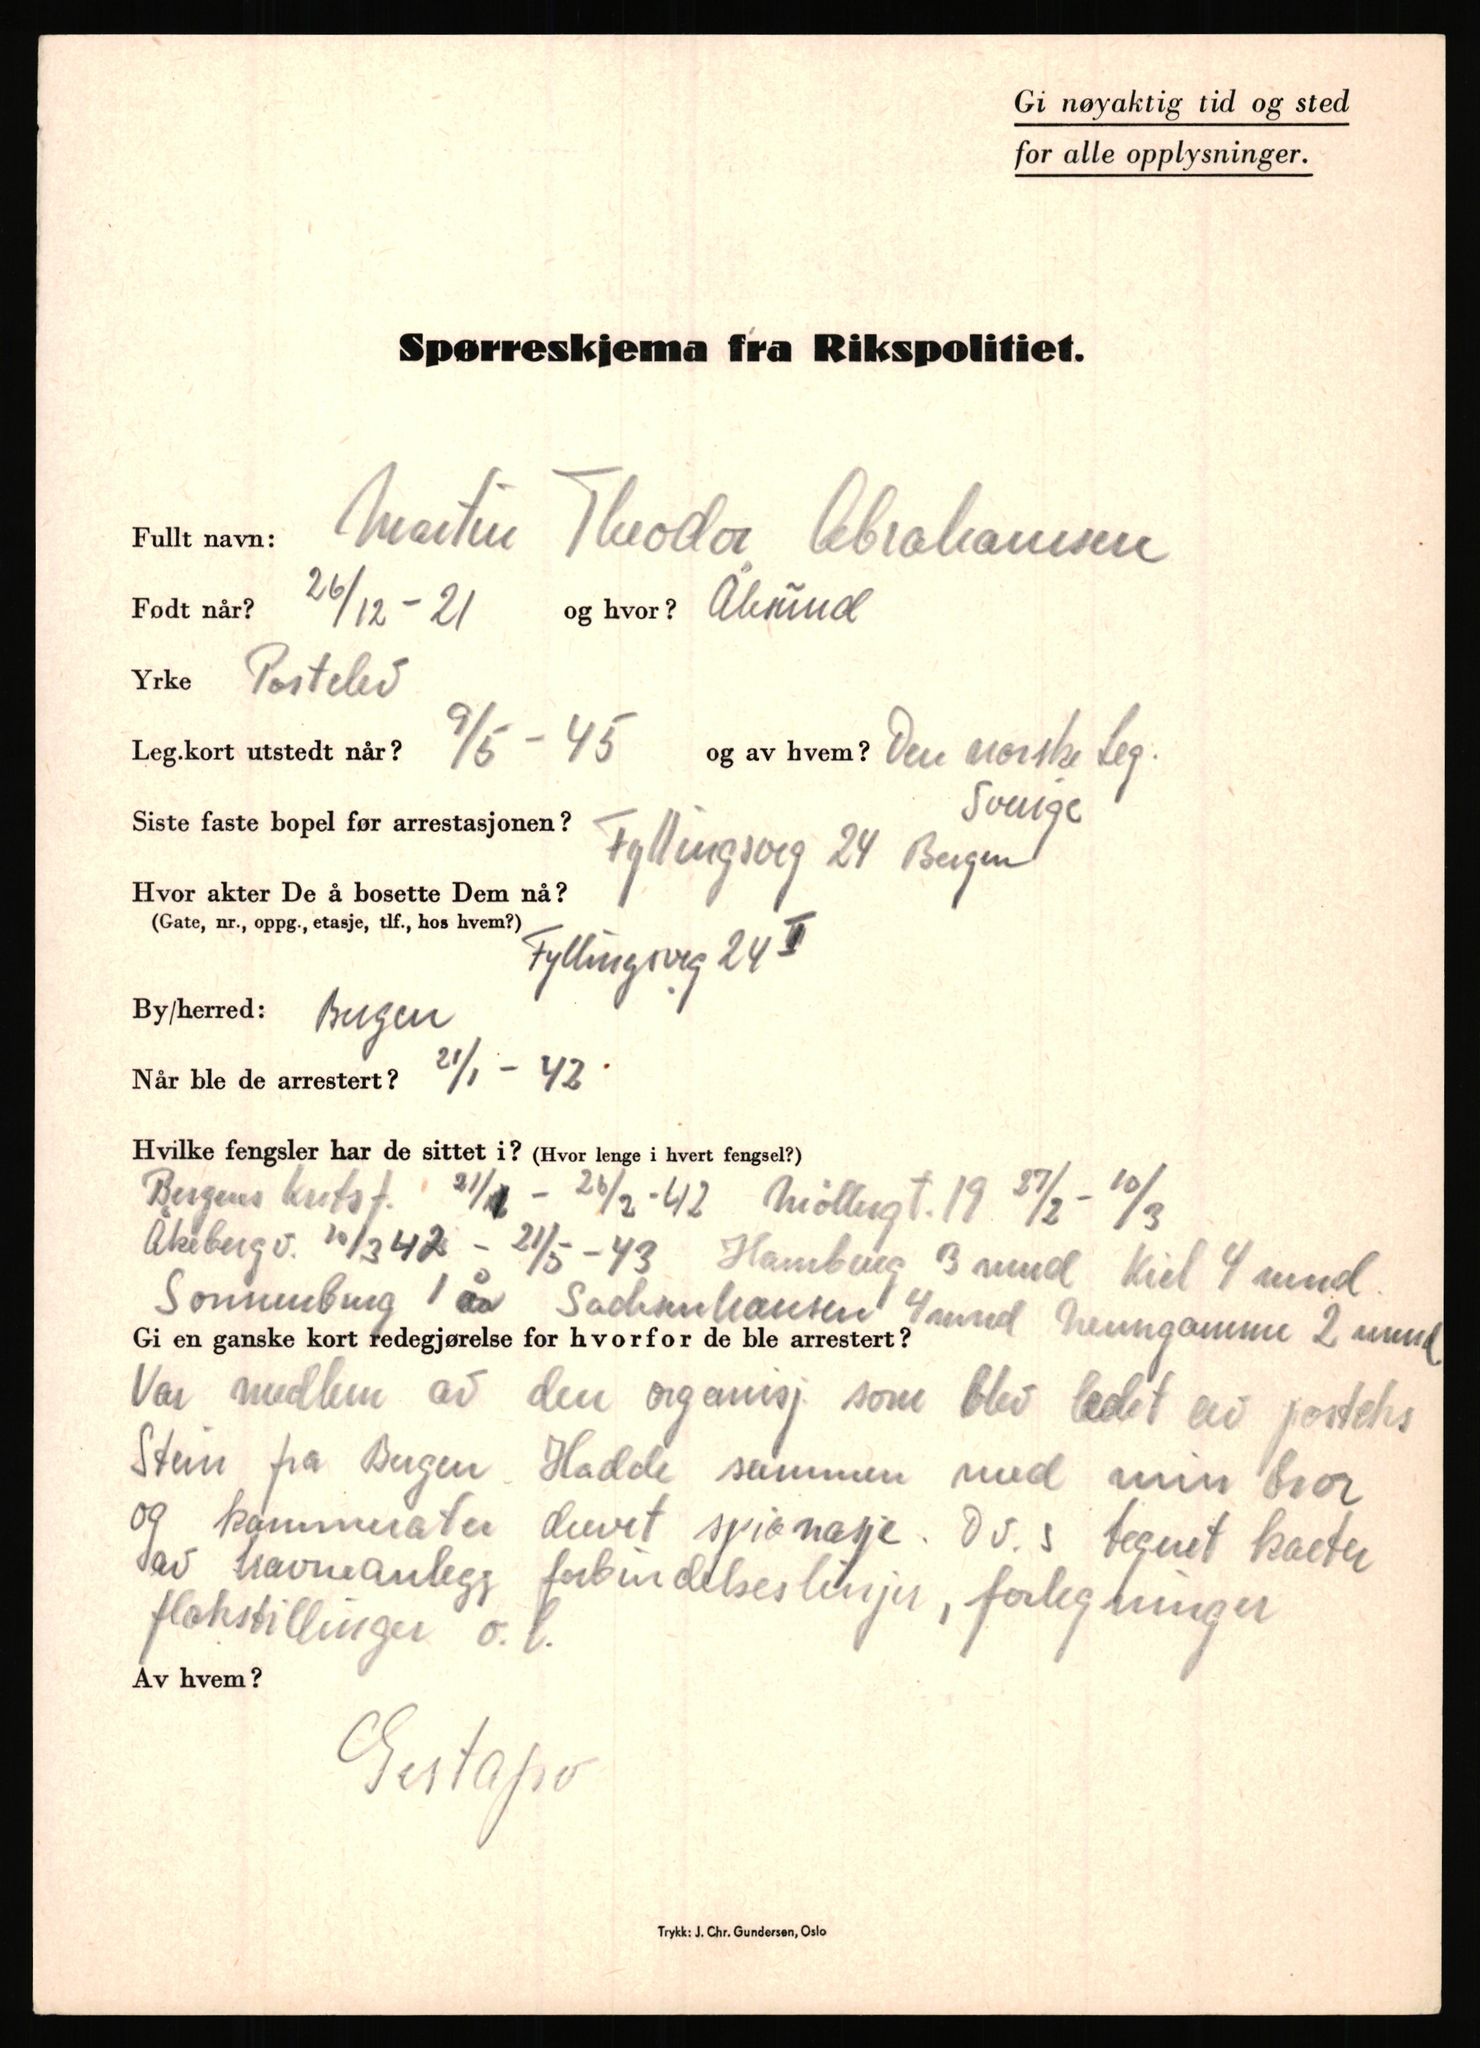 Gi nøyaktig tid og sted
for alle opplysninger.
Spørreskjema fra Rikspolitiet.
Fullt navn: Martin Theodor Abrahamsen
Født når? 26/12 - 21 og hvor? Ålesund
Yrke Postelev
Leg.kort utstedt når? 9/5 - 45 og av hvem? Den norske Leg.
Sverige
Siste faste bopel før arrestasjonen? Fyllingsveg 24 Bergen
Hvor akter De å bosette Dem nå?
(Gate, nr., oppg., etasje, tlf., hos hvem?)
Fyllingsveg 24 II
By/herred: Bergen
Når ble de arrestert? 21/1 - 42
Hvilke fengsler har de sittet i? (Hvor lenge i hvert fengsel?)
Bergens kretsf. 21/1 - 26/2 - 42 Möllergt. 19 27/2 - 10/3
Åkebergv. 10/3 42 - 21/5 - 43 Hamburg 3 mnd Kiel 4 mnd.
Sonnenburg 1 år Sachsenhausen 4 mnd Neuengamme 2 mnd
Gi en ganske kort redegjørelse for hvorfor de ble arrestert?
Var medlem av den organisj som blev ledet av posteks
Stein fra Bergen. Hadde sammen med min bror
og kammerater drevet spionasje. Dv.s tegnet karter
av havneanlegg forbindelseslinjer, forlegninger
flakstillinger o. l.
Av hvem?
Gestapo
Trykk: J. Chr. Gundersen, Oslo